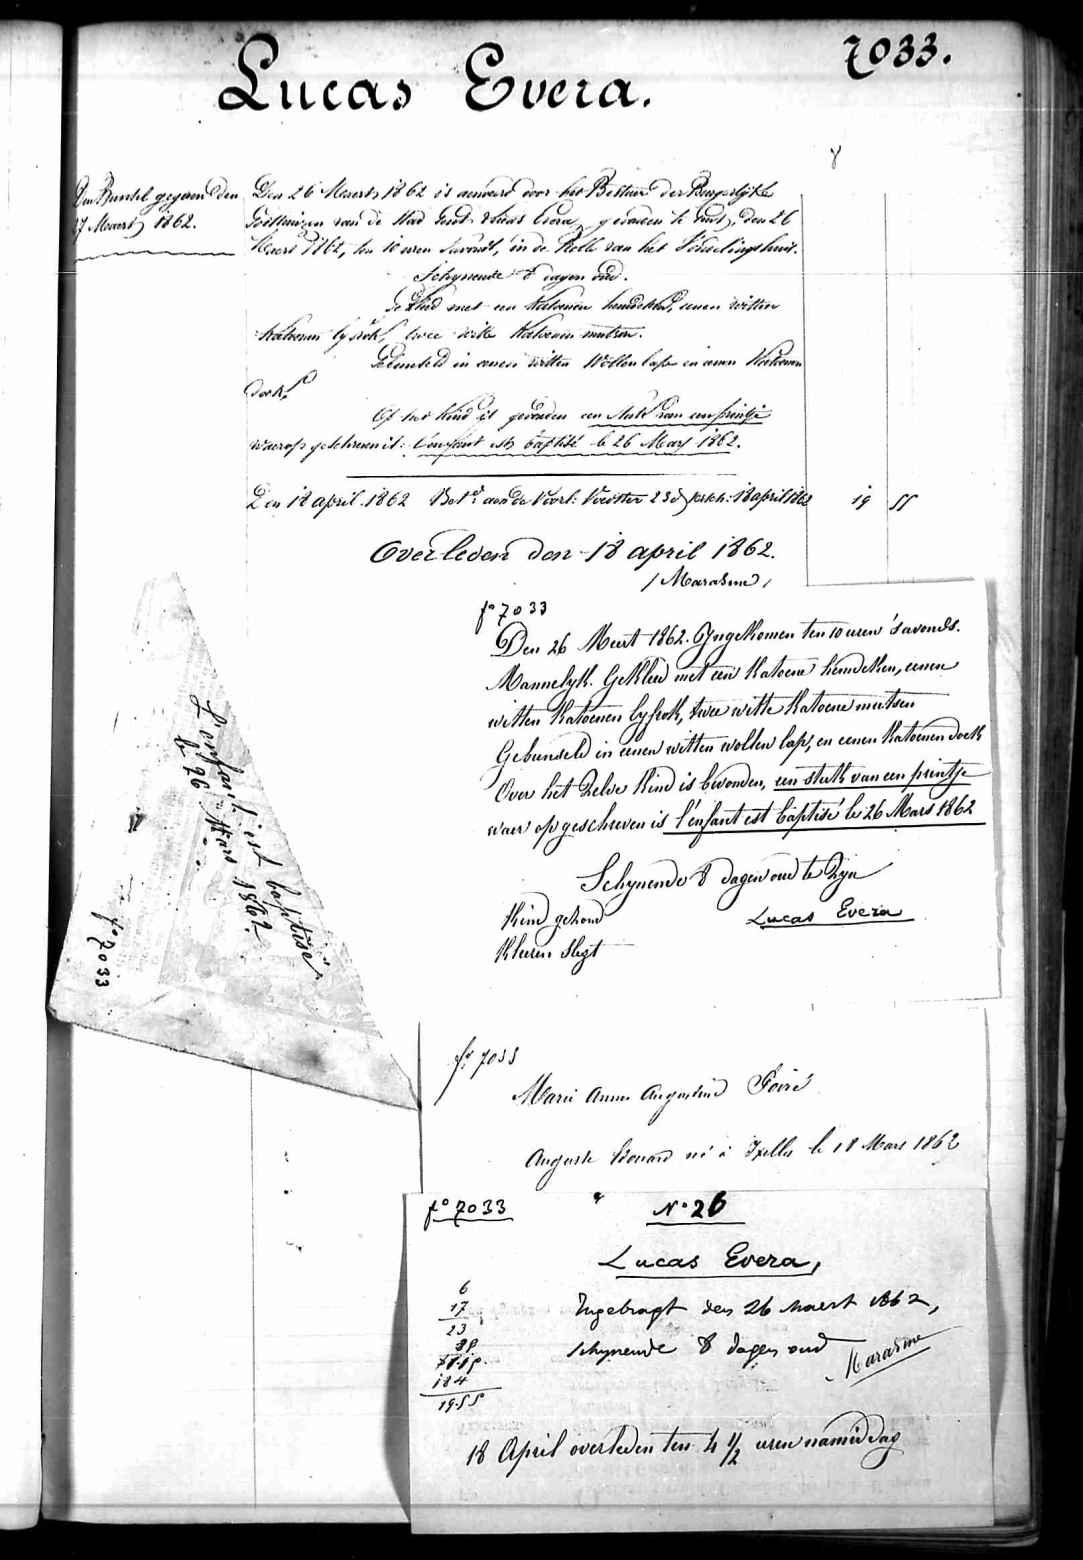 7033.
Lucas Evera.
Den Bundel gegeven den
27 Maart 1862.
Den 26 Meert 1862 is aenveerd door het Bestuur der Burgerlyke
Godshuizen van de Stad Gent: Lucas Evera, gevonden te Gent, den 26
Meert 1862, ten 10 uren 'savonds, in de Rolle van het Vondelingshuis.
Schynende 8 dagen oud.
Gekleed met een Katoenen hemdeken, eenen witten
Katoenen lyfrok, twee witte Katoenen mutsen.
Gebundeld in eenen witten Wollen lap en eenen Katoenen
doek.
Op het Kind is gevonden een Stuk van een printje
waerop geschreven is: L'enfant est baptisé le 26 Mars 1862.
Den 18 april 1862 Bet.d aen de Voorl: Voedster 23 d 18 april 1862 19 55
Overleden den 18 april 1862.
/ Marasme /
f° 7033
Den 26 Meert 1862. Ingekomen ten 10 uren 's avonds.
Mannelyk. Gekleed met een Katoene hemdeken, eenen
witten Katoenen lyfrok, twee witte Katoene mutsen
Gebundeld in eenen witten wollen lap, en eenen Katoenen doek
Over het zelve Kind is bevonden, een stuk van een printje
waer op geschreven is l'enfant est baptisé le 26 Mars 1862
Schynende 8 dagen oud te Zyn
Kind gezond
Lucas Evera
Kleeren Slegt
L'enfant est baptisé
le 26 Mars 1862.
f° 7033
f° 7033
Marie Anne Augustine Poiré
Auguste Edouard né à Ixelles le 18 Mars 1862
f° 7033
N° 26
Lucas Evera,
6
17
23
Ingebragt den 26 maert 1862,
schynende 8 dagen oud
Marasme
184
19.55
18 April overleden ten 4 1/2 uren namiddag